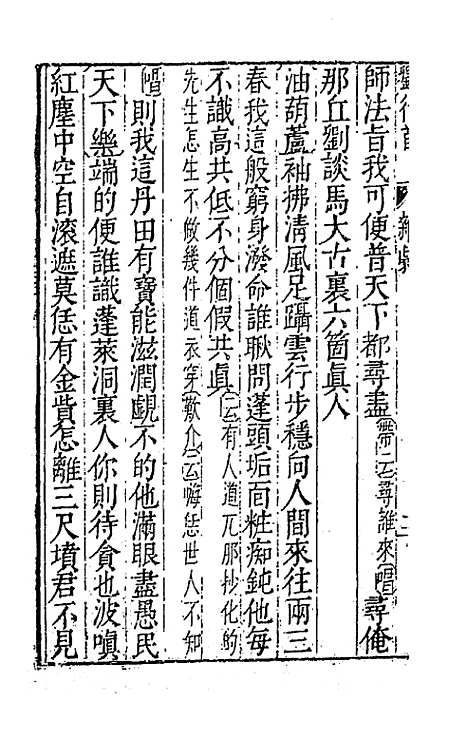 師法旨我可便普天下都尋盡帶二云尋誰來唱尋俺
那丘劉談馬大古裏六箇眞人
油葫蘆袖拂淸風足躡雲行步穩向人間來往兩三
春我這般窮身潑命誰瞅問蓬頭垢面粧痴鈍他每
不識高共低不分個假共眞云有人道兀那抄化的
先生怎生不做幾件道衣穿歎介云悔恁世人不知
唱則我這丹田有寶能滋潤覷不的他滿眼盡愚民
天下樂端的便誰識蓬萊洞裏人你則待貪也波嗔
紅塵中空自滾遮莫恁有金貲怎離三尺墳君不見